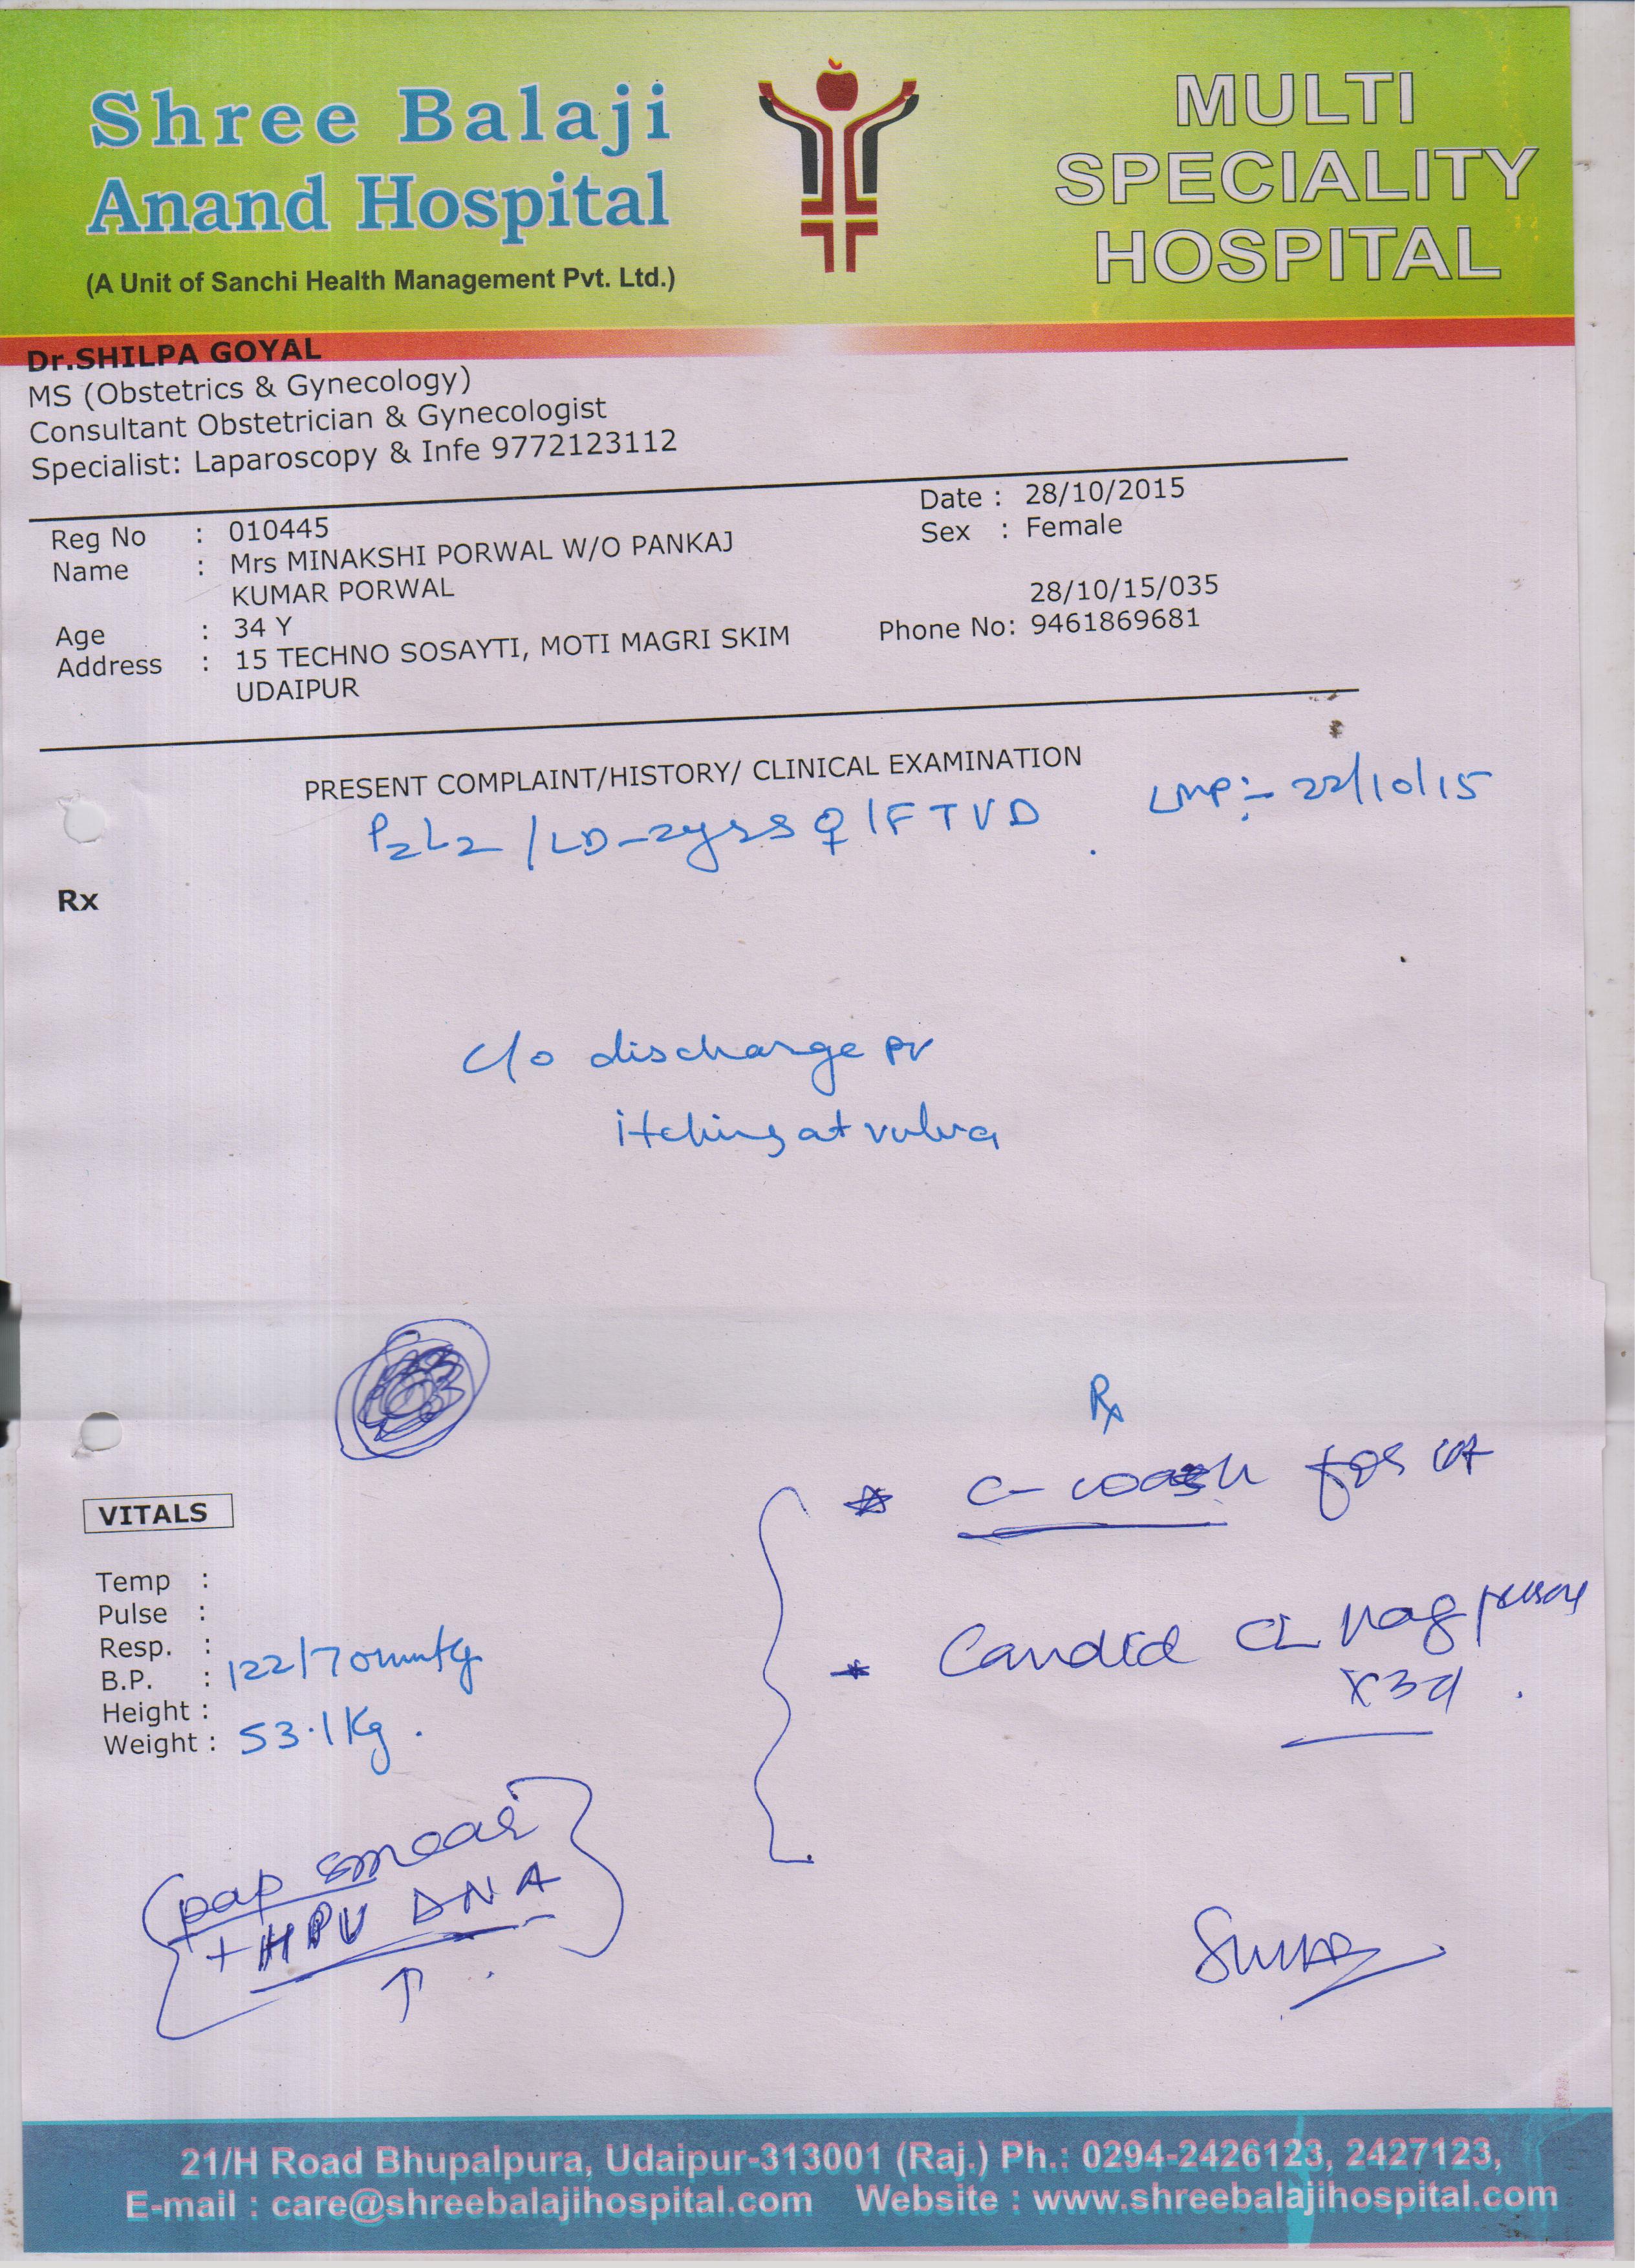 Shree Balaji
Anand Hospital
(A Unit of Sanchi Health Management Pvt. Ltd.)
MULTI
SPECIALITY
HOSPITAL
Dr.SHILPA GOYAL
MS (Obstetrics & Gynecology)
Consultant Obstetrician & Gynecologist
Specialist: Laparoscopy & Infe 9772123112
Reg No : 010445
Date : 28/10/2015
Name : Mrs MINAKSHI PORWAL W/O PANKAJ
Sex : Female
KUMAR PORWAL
28/10/15/035
Age : 34 Y
Phone No: 9461869681
Address : 15 TECHNO SOSAYTI, MOTI MAGRI SKIM
UDAIPUR
PRESENT COMPLAINT/HISTORY/ CLINICAL EXAMINATION
LMP:- 22/10/15
P2L2 / LD-2yrs ♀ / FTVD
Rx
c/o discharge pv
itching at vulva
Rx
* C- wash for
* Candid CL vag
x3d.
VITALS
Temp :
Pulse :
Resp. :
B.P. : 122/70mmHg
Height :
Weight : 53.1 Kg.
pap smear
+ HPV DNA
21/H Road Bhupalpura, Udaipur-313001 (Raj.) Ph.: 0294-2426123, 2427123,
E-mail : care@shreebalajihospital.com Website : www.shreebalajihospital.com